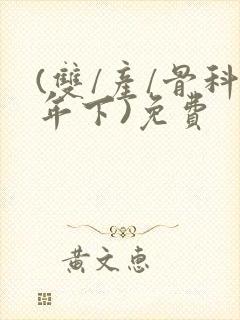 (雙/產/骨科
年下)免費
黃文惠